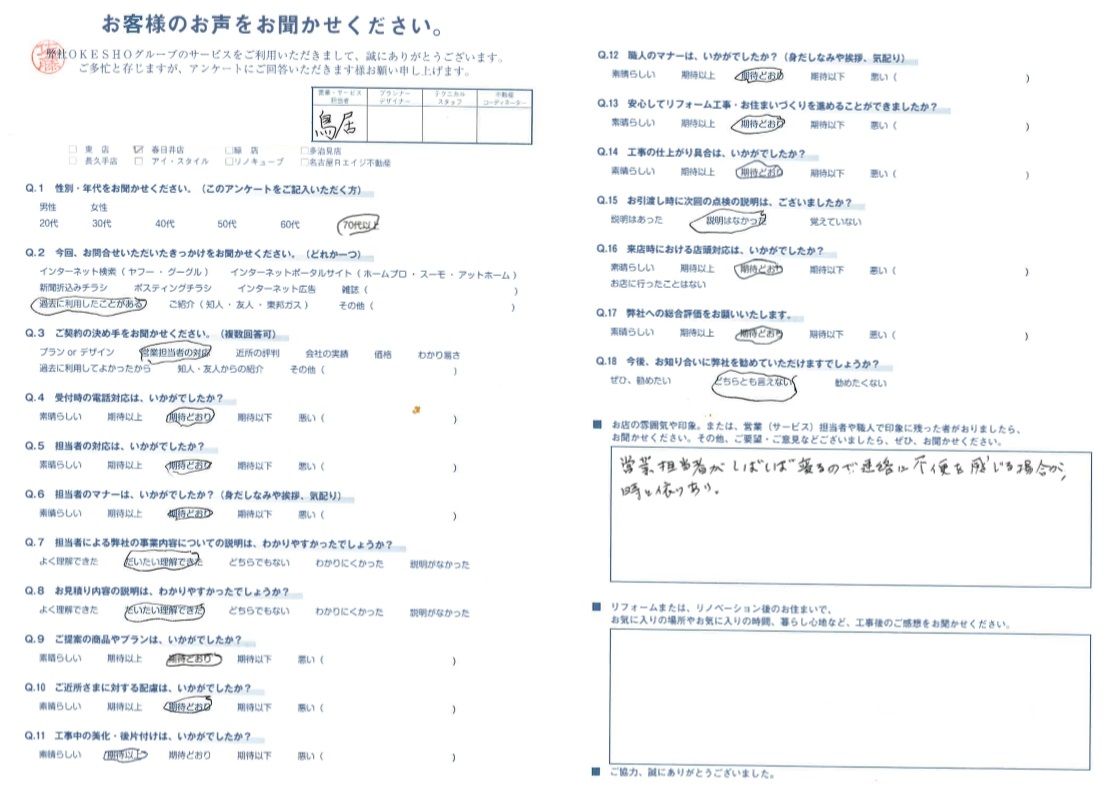 お客様のお声をお聞かせください。
弊社OKESHOグループのサービスをご利用いただきまして、誠にありがとうございます。
ご多忙と存じますが、アンケートにご回答いただきます様お願い申し上げます。
営業・サービス担当者 プランナーデザイナー テクニカルスタッフ 不動産コーディネーター
鳥居
□ 東 店 ☑ 春日井店 □緑 店 □多治見店
□ 長久手店 □ アイ・スタイル □リノキューブ □名古屋Rエイジ不動産
Q.1 性別・年代をお聞かせください。(このアンケートをご記入いただく方)
男性 女性
20代 30代 40代 50代 60代 70代以上
Q.2 今回、お問合せいただいたきっかけをお聞かせください。(どれか一つ)
インターネット検索(ヤフー・グーグル) インターネットポータルサイト(ホームプロ・スーモ・アットホーム)
新聞折込みチラシ ポスティングチラシ インターネット広告 雑誌( )
過去に利用したことがある ご紹介(知人・友人・東邦ガス) その他( )
Q.3 ご契約の決め手をお聞かせください。(複数回答可)
プラン or デザイン 営業担当者の対応 近所の評判 会社の実績 価格 わかり易さ
過去に利用してよかったから 知人・友人からの紹介 その他( )
Q.4 受付時の電話対応は、いかがでしたか?
素晴らしい 期待以上 期待どおり 期待以下 悪い( )
Q.5 担当者の対応は、いかがでしたか?
素晴らしい 期待以上 期待どおり 期待以下 悪い( )
Q.6 担当者のマナーは、いかがでしたか?(身だしなみや挨拶、気配り)
素晴らしい 期待以上 期待どおり 期待以下 悪い( )
Q.7 担当者による弊社の事業内容についての説明は、わかりやすかったでしょうか?
よく理解できた だいたい理解できた どちらでもない わかりにくかった 説明がなかった
Q.8 お見積り内容の説明は、わかりやすかったでしょうか?
よく理解できた だいたい理解できた どちらでもない わかりにくかった 説明がなかった
Q.9 ご提案の商品やプランは、いかがでしたか?
素晴らしい 期待以上 期待どおり 期待以下 悪い( )
Q.10 ご近所さまに対する配慮は、いかがでしたか?
素晴らしい 期待以上 期待どおり 期待以下 悪い( )
Q.11 工事中の美化・後片付けは、いかがでしたか?
素晴らしい 期待以上 期待どおり 期待以下 悪い( )
Q.12 職人のマナーは、いかがでしたか?(身だしなみや挨拶、気配り)
素晴らしい 期待以上 期待どおり 期待以下 悪い( )
Q.13 安心してリフォーム工事・お住まいづくりを進めることができましたか?
素晴らしい 期待以上 期待どおり 期待以下 悪い( )
Q.14 工事の仕上がり具合は、いかがでしたか?
素晴らしい 期待以上 期待どおり 期待以下 悪い( )
Q.15 お引渡し時に次回の点検の説明は、ございましたか?
説明はあった 説明はなかった 覚えていない
Q.16 来店時における店頭対応は、いかがでしたか?
素晴らしい 期待以上 期待どおり 期待以下 悪い( )
お店に行ったことはない
Q.17 弊社への総合評価をお願いいたします。
素晴らしい 期待以上 期待どおり 期待以下 悪い( )
Q.18 今後、お知り合いに弊社を勧めていただけますでしょうか?
ぜひ、勧めたい どちらとも言えない 勧めたくない
■ お店の雰囲気や印象。または、営業(サービス)担当者や職人で印象に残った者がおりましたら、
お聞かせください。その他、ご要望・ご意見などございましたら、ぜひ、お聞かせください。
営業担当者がしばしば変るので連絡に不便を感じる場合が、
時と依りあり。
■ リフォームまたは、リノベーション後のお住まいで、
お気に入りの場所やお気に入りの時間、暮らし心地など、工事後のご感想をお聞かせください。
■ ご協力、誠にありがとうございました。